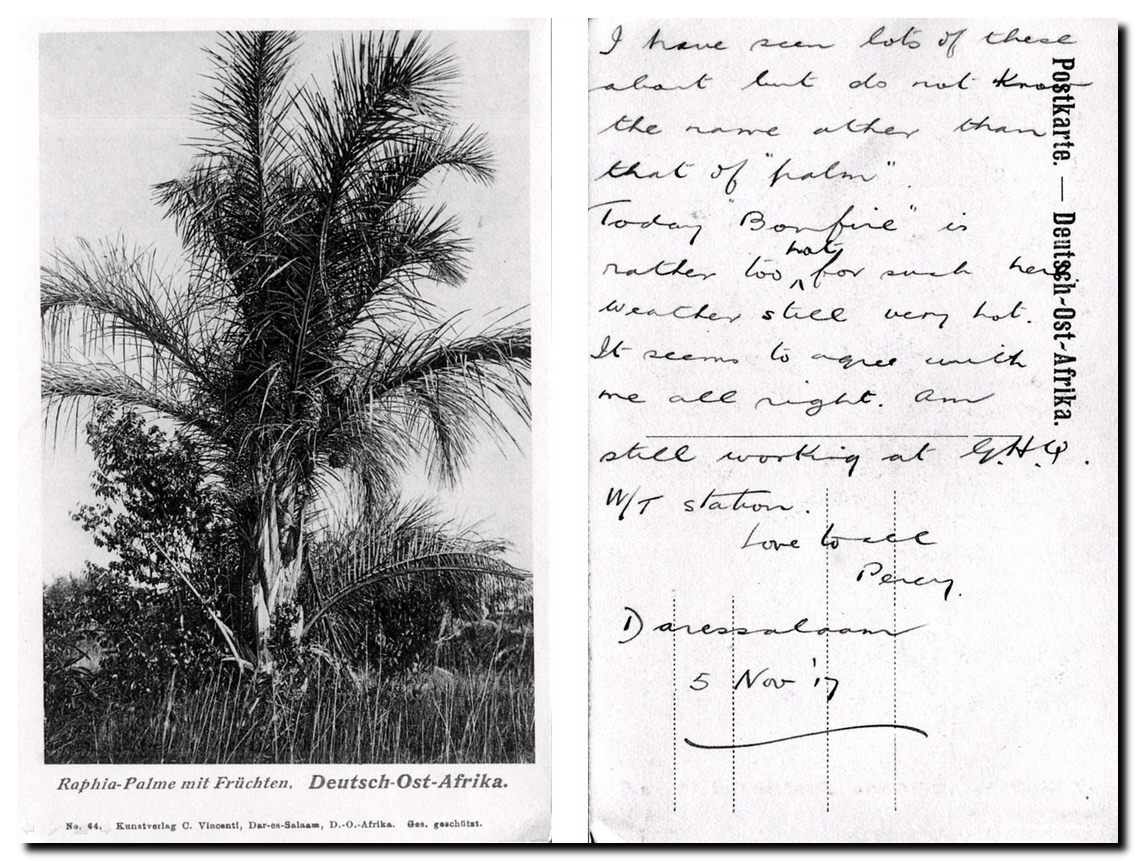 Raphia-Palme mit Früchten. Deutsch-Ost-Afrika.
No. 64. Kunstverlag C. Vincenti, Dar-es-Salaam, D.-O.-Afrika. Ges. geschützt.
I have seen lots of these
about but do not know
the name other than
that of "palm".
Today "Bonfire" is
rather too hot for such here
weather still very hot.
It seems to agree with
me all right. Am
still working at G.H.Q.
W/T station.
Love to all
Percy.
Daressalaam
5 Nov '17
Postkarte. — Deutsch-Ost-Afrika.